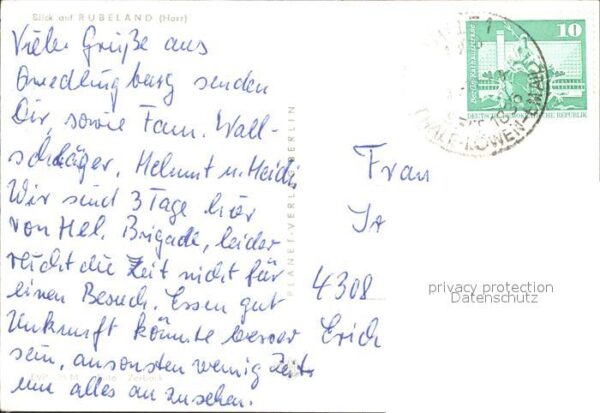 Blick auf RUBELAND (Harz)
Viele Grüße aus
Quedlingburg senden
Dir, sowie Fam. Wall-
schläger, Helmut u. Heidi
Wir sind 3 Tage hier
von Hel. Brigade, leider
reicht die Zeit nicht für
einen Besuch. Essen gut
Unkunft könnte besser
sein, ansonsten wenig Zeit
um alles anzusehen.
PLANET-VERLAG BERLIN
10
Berlin-Rathausstraße
DEUTSCHE DEMOKRATISCHE REPUBLIK
Frau
4308
Erich
privacy protection
Datenschutz